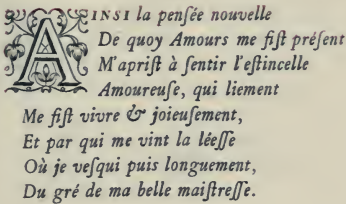 AINSI la penſée nouvelle
De quoy Amours me fiſt préſent
M'apriſt à ſentir l'eſtincelle
Amoureuſe, qui liement
Me fiſt vivre & joieuſement,
Et par qui me vint la léeſſe
Où je veſqui puis longuement,
Du gré de ma belle maiſtreſſe.